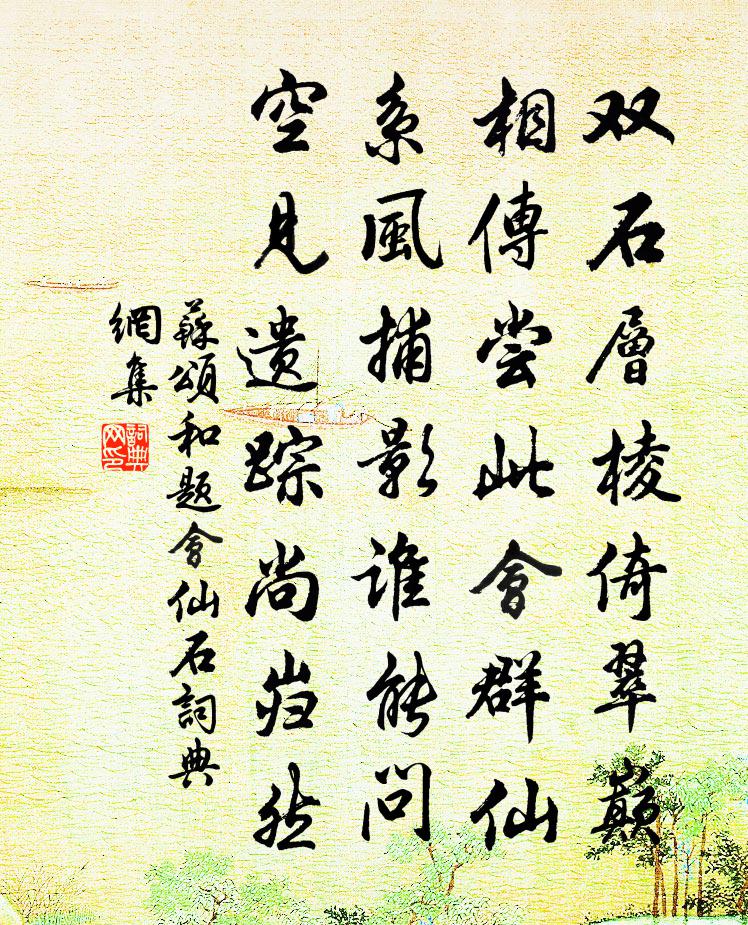 双石層棱倚翠巔
相傳尝此會群仙
系風捕影谁能問
空見遗踪尚岿然
蘇頌和题會仙石詞典
網集
詞典网印